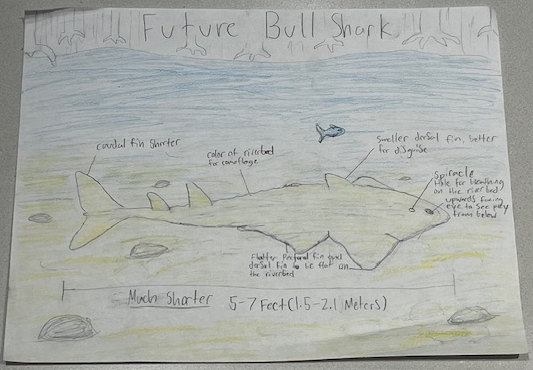 Future Bull Shark
caudal fin shorter
color of riverbed
for camoflage
smaller dorsal fin, better
for disguise
Spiracle
Hole for breathing
on the riverbed
upwards facing
eye to see prey
from below
Flatter
fin and
dorsal fin to be flat on
the riverbed
Much shorter 5-7 Feet (1.5-2.1 Meters)